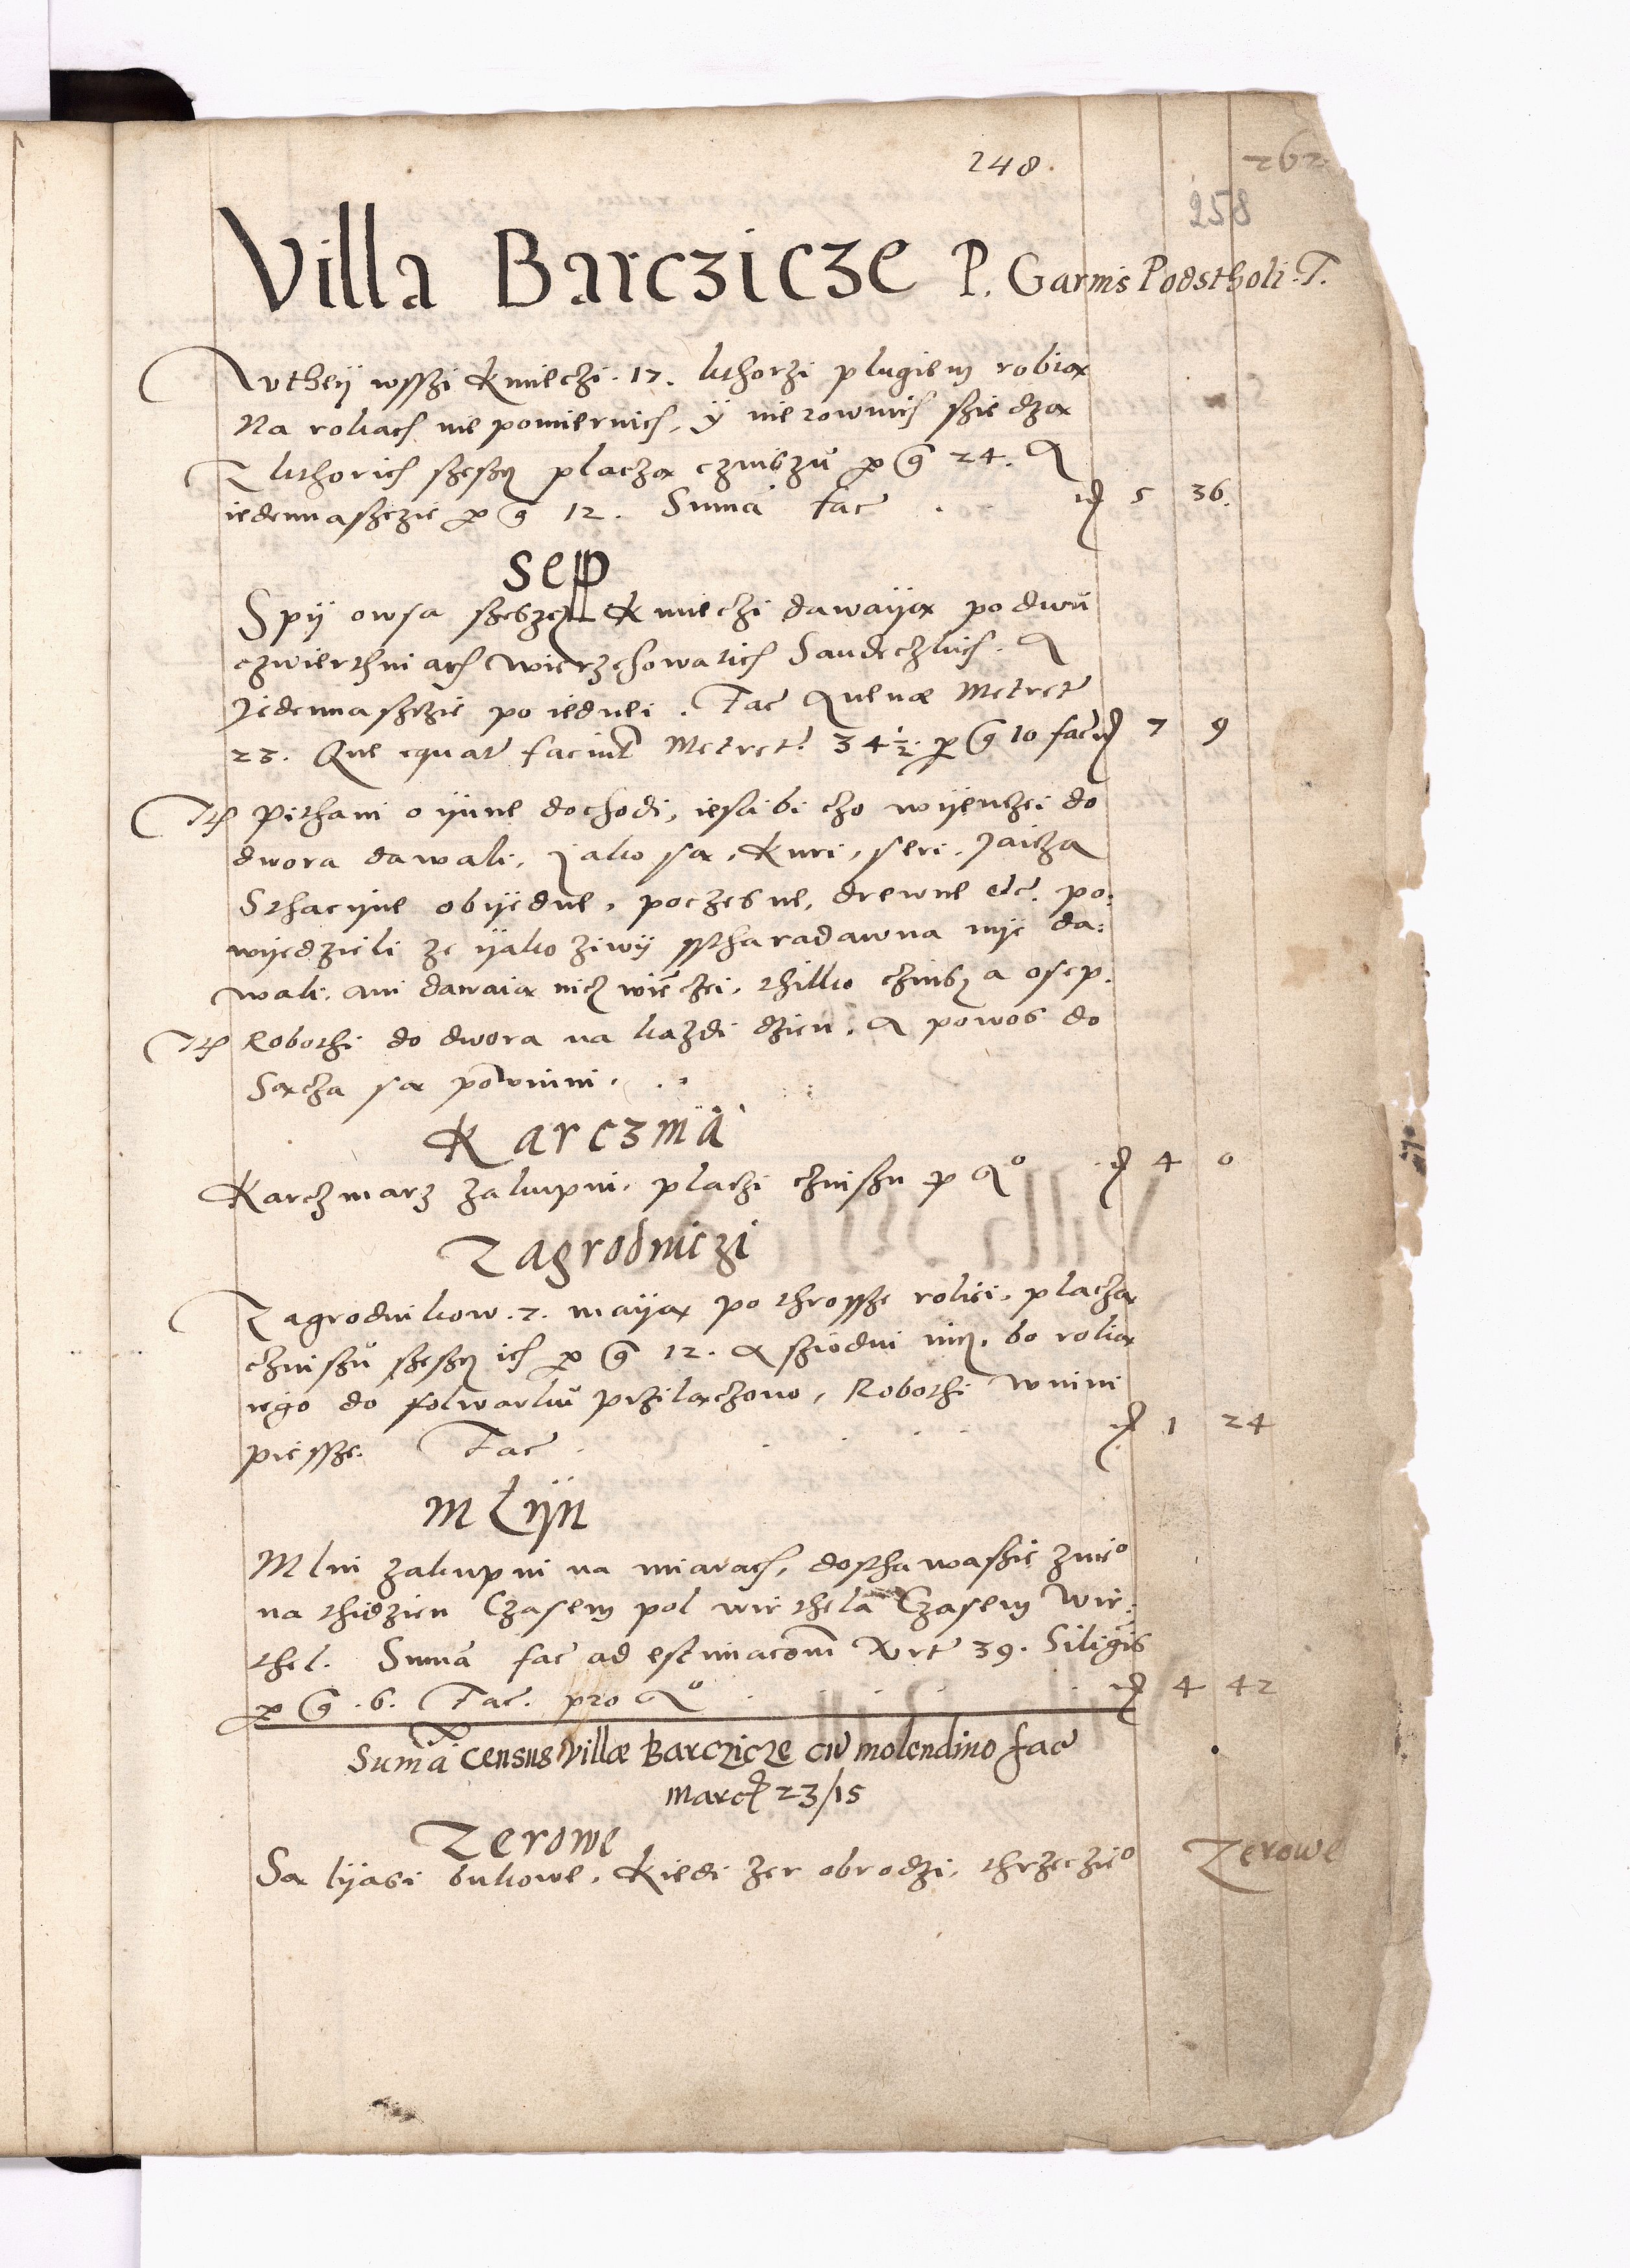 248.
262
258
Villa Barczicze P. Garnis Podstholi. T.
Wthey wsszi Kmieczi . 17 . kthorzi plugiem robią
Na rolach niepomiernich, ÿ nierownich szie dzą
Z kthorich szeszcz placzą czinszu po g 24. A
iedennaszczie po g 12. Suma fac . . m 5 36.
Sep
Spÿ owsa szescz Kmieczi dawaÿą po dwu
czwierthniach wierzchowatich Sandeczkich. A
Jedennaszczie po iednei. Fac Avenæ Metret
23. Que equat faciunt Metret 34 1/2. po g 10 fac m 7 9
Itm Pithani o ÿnne dochodi, iesli bi czo wÿenczei do
dwora dawali, Jako są, Kuri, seri, Jaicza
Sthacÿine obÿedne, poczesne, drewne etc. po:
wÿedzieli ze ÿako ziwÿ stharadawna nye da:
wali, ani dawaią nicz wieczei, thilko czinsz a osep.
Itm Robothi do dwora na kazdi dzien. A powos do
Sącza są powinni. . .
Karczma
Karczmarz zakupni, placzi czinszu p Aº m 4 0
Zagrodniczi
Zagrodnikow . 7 . maÿą po throssze roliei, placzą
czinszu szeszcz ich po g 12. A sziodmi nicz, bo rolią
iego do folwarku przilączono, Robothi winni
piessze. Fac . . . . . m 1 24
Mlÿn
Mlin zakupni na miarach, dosthawaszie z nieº
na thidzien Czasem pol wierthela Czasem wier:
thel. Suma fac ad estimacom Qrt 39. Siliginis
po g . 6. Fac. pro Aº . . . . m 4 42
Suma Census villæ Barczicze cu molendino fac
Marck 23/15
Zerowe
Są lÿasi bukowe, Kiedi zer obrodzi, thrzeczieº Zerowe